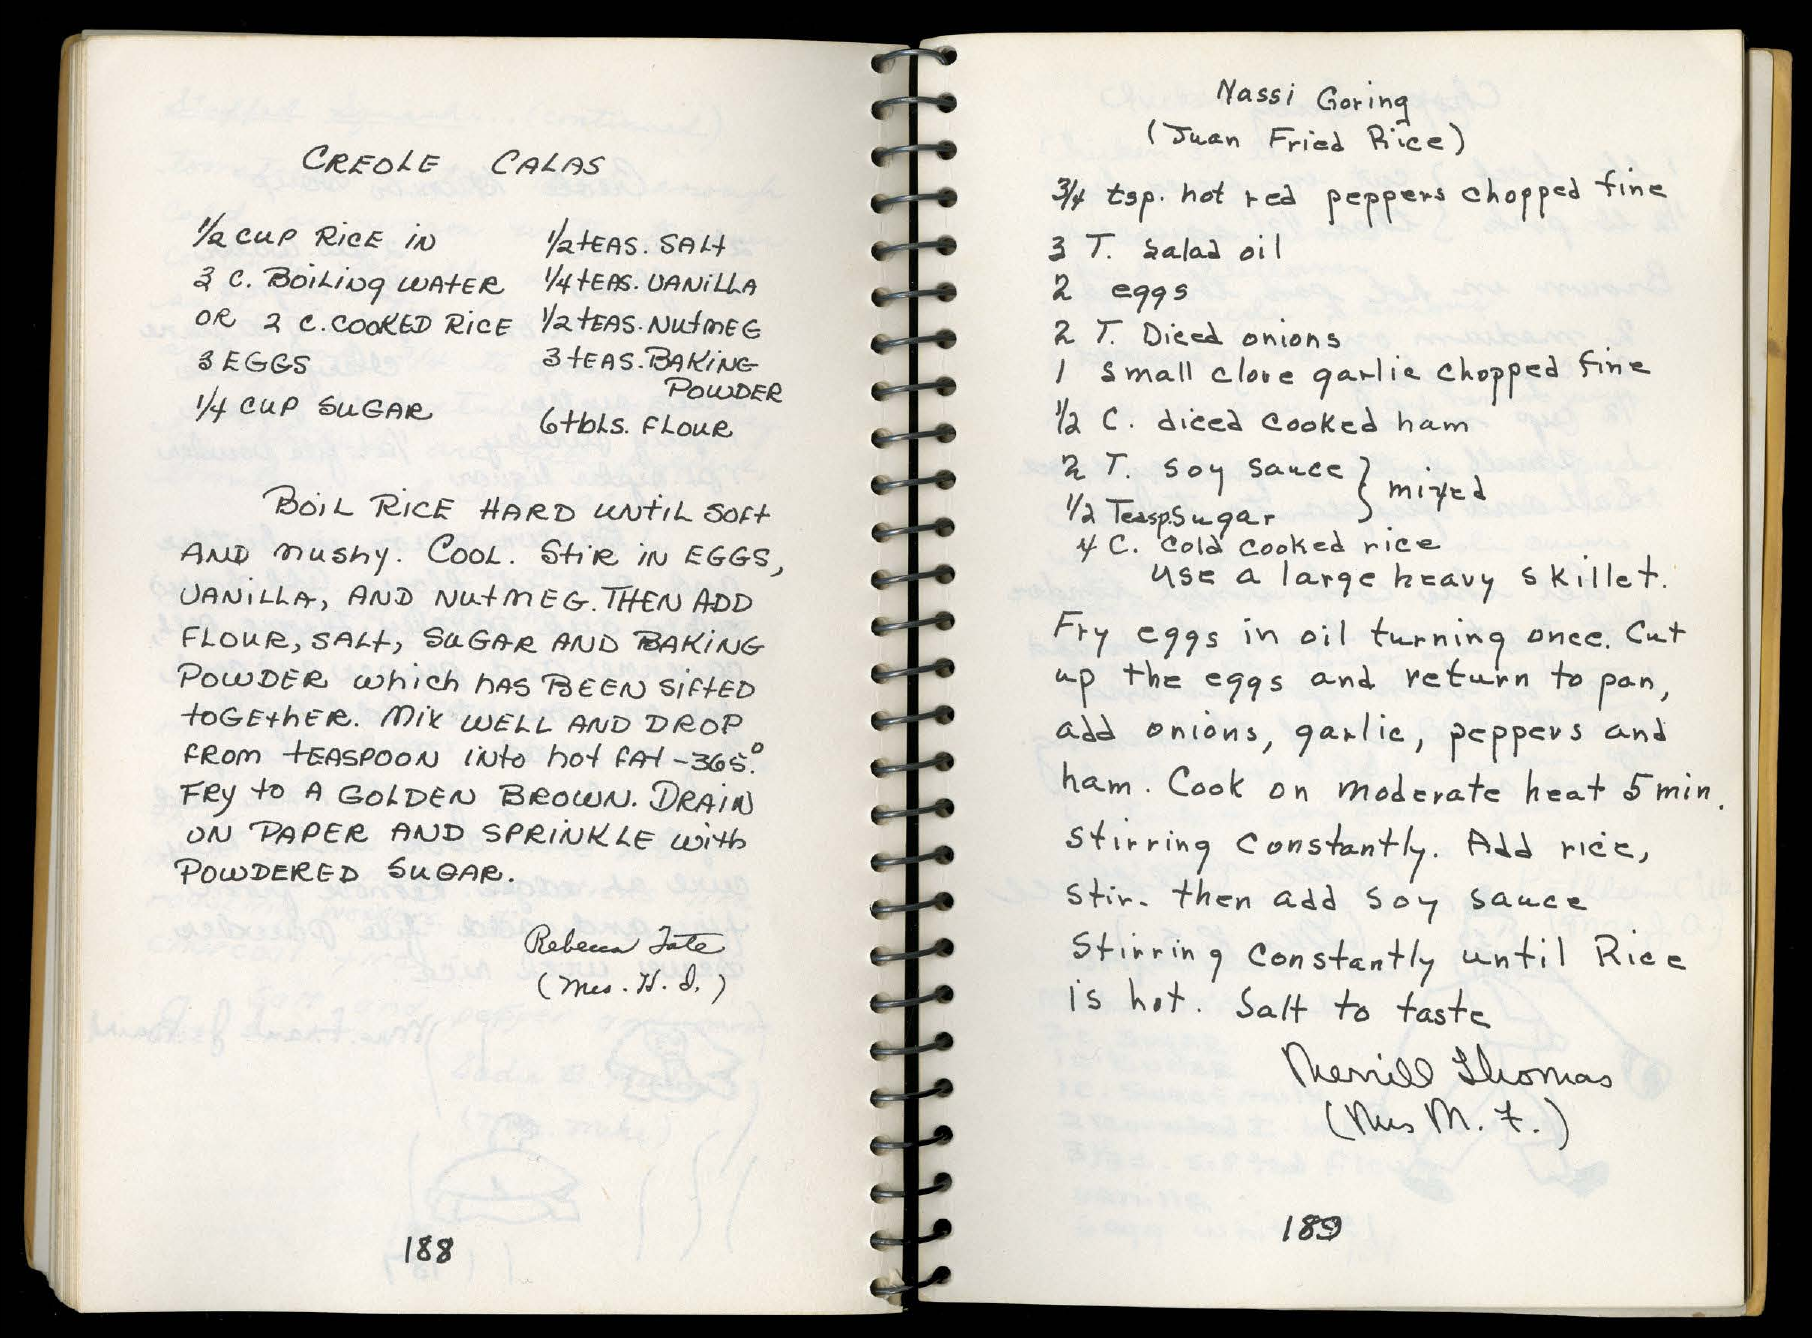 CREOLE CALAS
1/2 CUP RICE IN
3 C. BOILING WATER
OR 2 C. COOKED RICE
3 EGGS
1/4 CUP SUGAR
1/2 tEAS. SALt
1/4 tEAS. VANILLA
1/2 tEAS. NUtMEG
3 tEAS. BAKING
POWDER
6 tbLS. FLOUR
BOIL RICE HARD UNtIL SOFt
AND mushy. COOL. StIR IN EGGS,
VANILLA, AND NUtMEG. THEN ADD
FLOUR, SALt, SUGAR AND BAKING
POWDER which hAS BEEN SIFtED
tOGEthER. MIX WELL AND DROP
FROM tEASPOON INtO hot FAt - 365°.
FRY to A GOLDEN BROWN. DRAIN
ON PAPER AND SPRINKLE with
POWDERED SUGAR.
Rebecca Tate
(Mrs. H. I.)
188
Nassi Goring
(Juan Fried Rice)
3/4 tsp. hot red peppers chopped fine
3 T. salad oil
2 eggs
2 T. Diced onions
1 small clove garlic chopped fine
1/2 C. diced cooked ham
2 T. soy sauce } mixed
1/2 Teasp. Sugar
4 C. cold cooked rice
Use a large heavy skillet.
Fry eggs in oil turning once. Cut
up the eggs and return to pan,
add onions, garlic, peppers and
ham. Cook on moderate heat 5 min.
stirring constantly. Add rice,
stir. then add soy sauce
Stirring constantly until Rice
is hot. Salt to taste
Merrill Thomas
(Mrs M. F.)
189